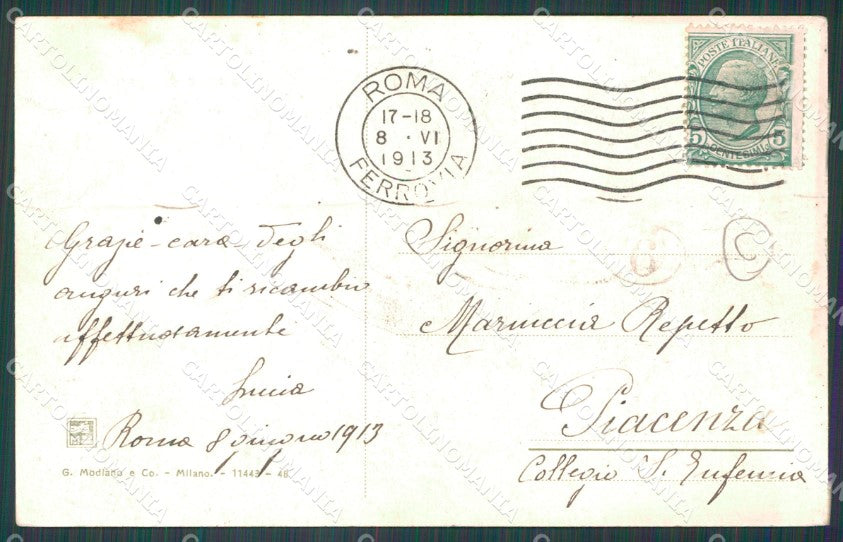 ROMA
17-18
8 · VI
1913
FERROVIA
POSTE ITALIANE
5 CENTESIMI 5
Grazie cara degli
auguri che ti ricambio
affettuosamente
Lucia
Roma 8 giugno 1913
G. Modiano e Co. - Milano. - 11443 - 48
C
Signorina
Mariuccia Repetto
Piacenza
Collegio S. Eufemia
CARTOLINOMANIA